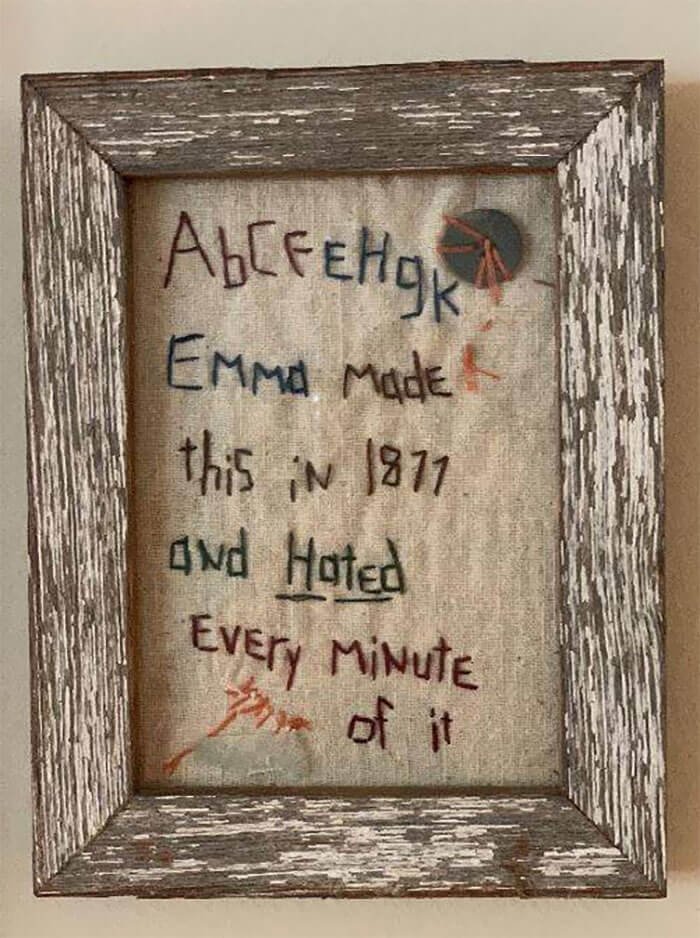 AbCFEHgK
Emma made
this iN 1877
aNd Hated
EvEry MiNutE
of it